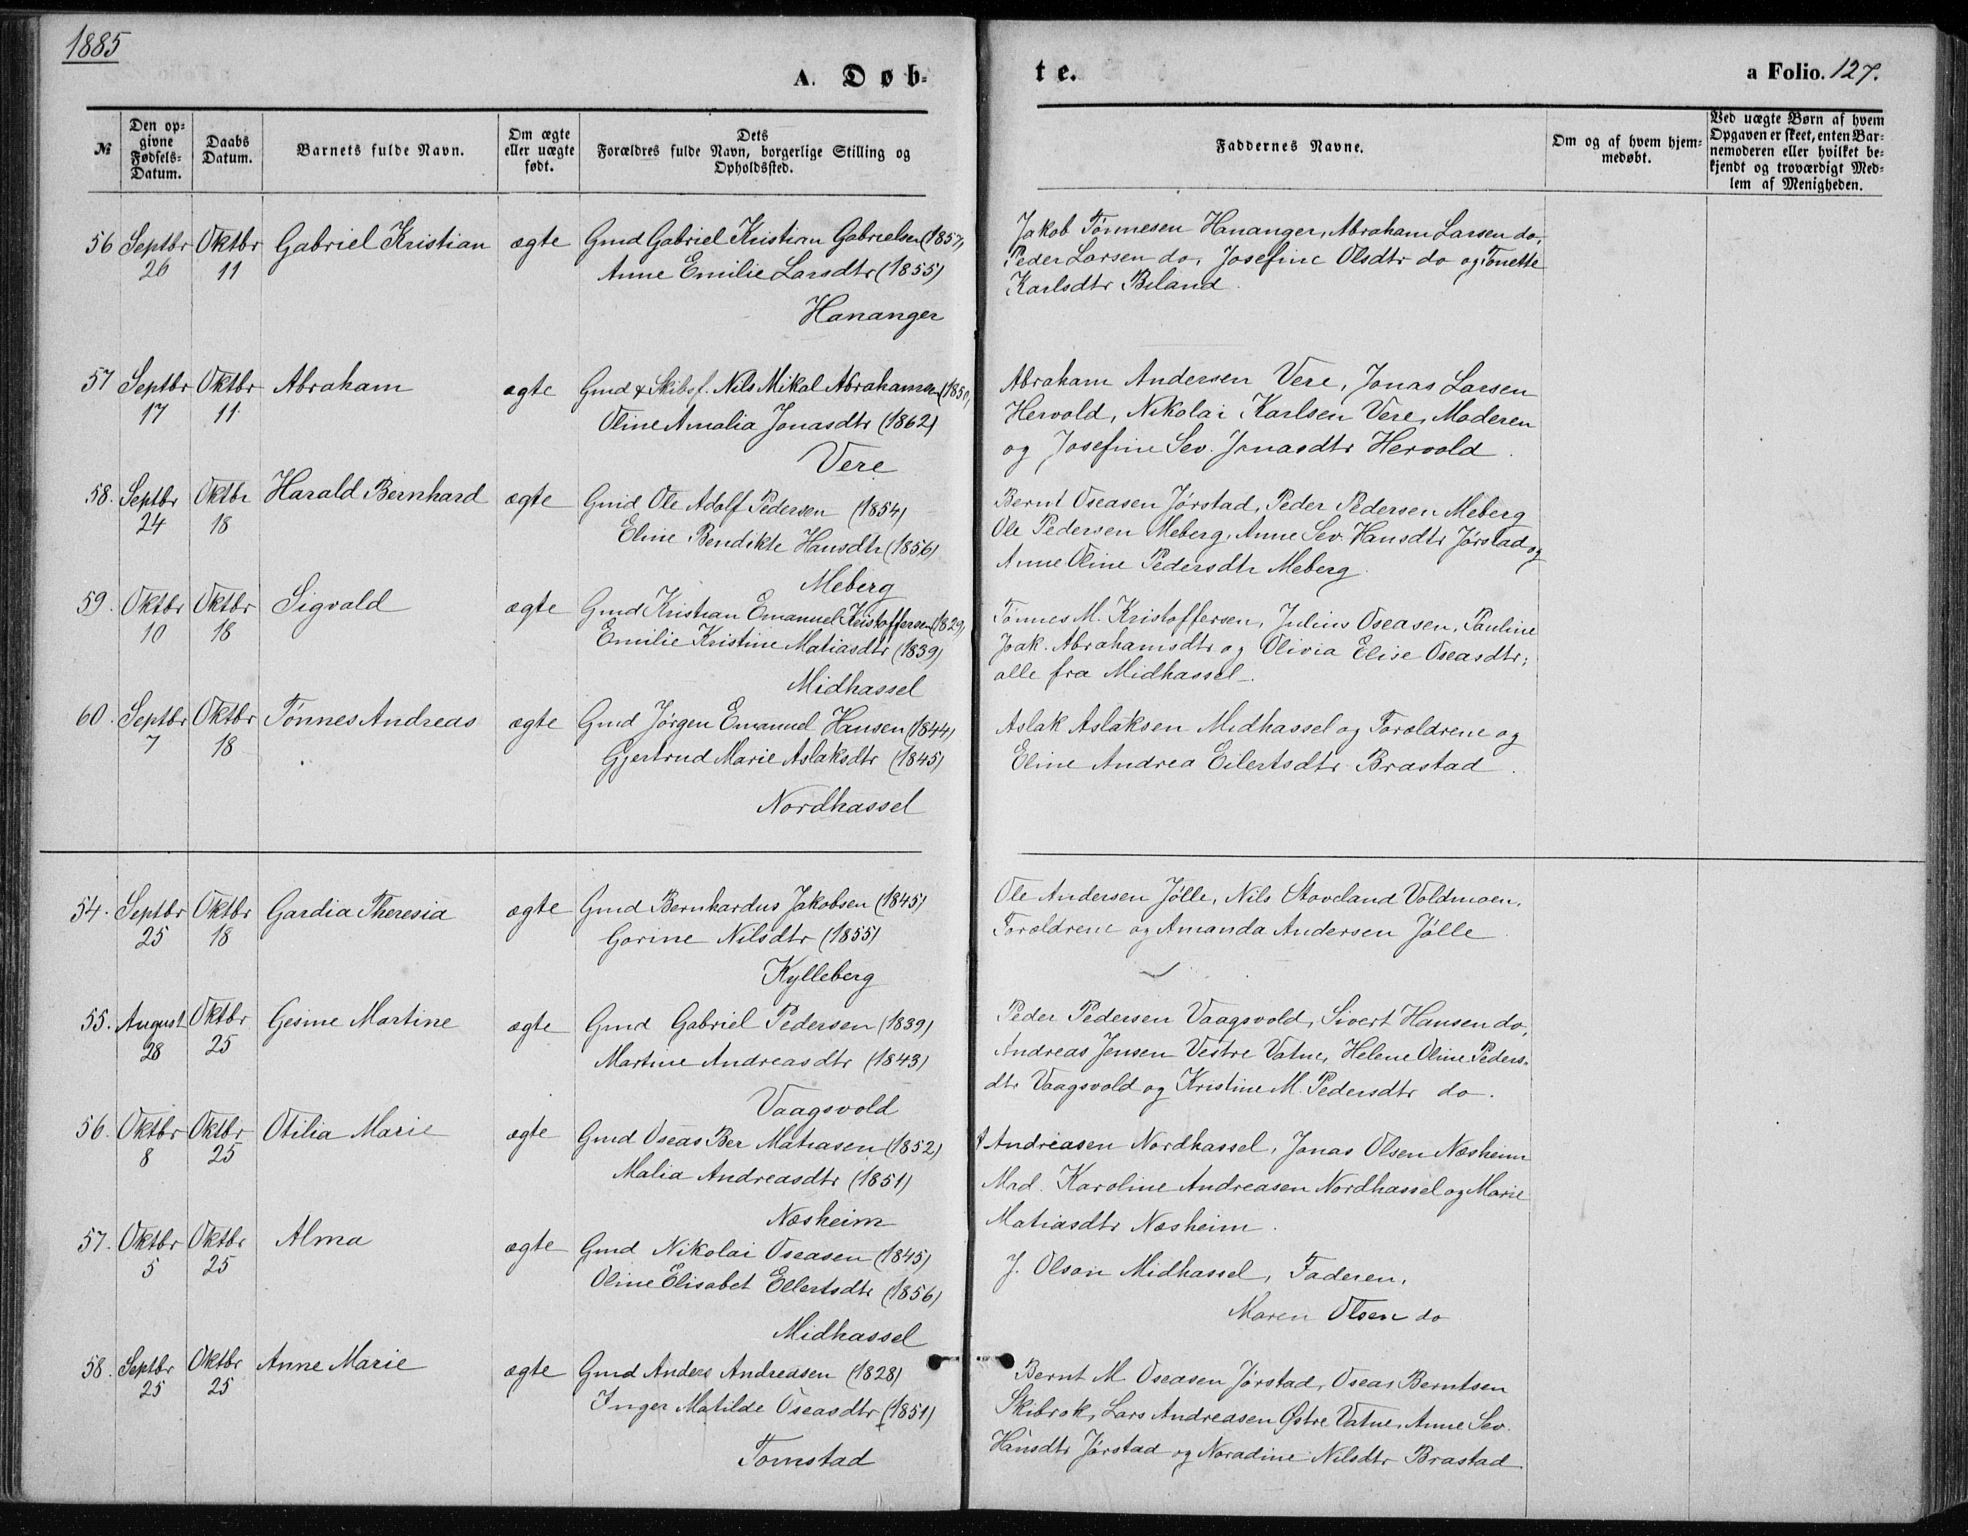 1885
A. Døb-
te.
a Folio. 127.
№
Den op-
givne
Fødsels-
Datum.
Daabs
Datum.
Barnets fulde Navn.
Om ægte
eller uægte
født.
Dets
Forældres fulde Navn, borgerlige Stilling og
Opholdssted.
Faddernes Navne.
Om og af hvem hjem-
medøbt.
Ved uægte Børn af hvem
Opgaven er skeet, enten Bar-
nemoderen eller hvilket be-
kjendt og troværdigt Med-
lem af Menigheden.
56 Septbr 26 Oktbr 11 Gabriel Kristian ægte Gmd Gabriel Kristian Gabrielsen (1857)
Anne Emilie Larsdtr (1855)
Hananger
Jakob Tønnesen Hananger, Abraham Larsen do,
Peder Larsen do, Josefine Olsdtr do og Tonette
Karlsdtr Beland.
57 Septbr 17 Oktbr 11 Abraham ægte Gmd & Skibsf. Nils Mikal Abrahamsen (1850)
Oline Amalia Jonasdtr (1862)
Vere
Abraham Andersen Vere, Jonas Larsen
Hervold, Nikolai Karlsen Vere, Moderen
og Josefine Sev. Jonasdtr Hervold.
58. Septbr 24 Oktbr 18 Harald Bernhard ægte Gmd Ole Adolf Pedersen (1854)
Eline Bendikte Hansdtr (1856)
Meberg
Bernt Oseasen Jørstad, Peder Pedersen Meberg
Ole Pedersen Meberg, Anne Sev. Hansdtr Jørstad og
Anne Oline Pedersdtr Meberg.
59. Oktbr 10 Oktbr 18 Sigvald ægte Gmd Kristian Emanuel Kristoffersen (1829)
Emilie Kristine Matiasdtr (1839)
Midhassel
Tønnes M. Kristoffersen, Julius Oseasen, Pauline
Joak. Abrahamsdtr og Olivia Elise Oseasdtr;
alle fra Midhassel.
60. Septbr 7 Oktbr 18 Tønnes Andreas ægte Gmd Jørgen Emanuel Hansen (1844)
Gjertrud Marie Aslaksdtr (1845)
Nordhassel
Aslak Aslaksen Midhassel og Forældrene og
Eline Andrea Eilertsdtr Brastad.
54. Septbr 25 Oktbr 18 Gardia Theresia ægte Gmd Bernhardus Jakobsen (1845)
Gorine Nilsdtr (1855)
Kylleberg
Ole Andersen Jølle, Nils Stoveland Voldmoen,
Forældrene og Amanda Andersen Jølle
55. August 28 Oktbr 25 Gesine Martine ægte Gmd Gabriel Pedersen (1839)
Martine Andreasdtr (1843)
Vaagsvold
Peder Pedersen Vaagsvold, Sivert Hansen do,
Andreas Jensen Vestre Vatne, Helene Oline Peders-
dtr Vaagsvold og Kristine M. Pedersdtr do.
56. Oktbr 8 Oktbr 25 Otilia Marie ægte Gmd Oseas Ber Matiasen (1852)
Malia Andreasdtr (1851)
Næsheim
A Andreasen Nordhassel, Jonas Olsen Næsheim
Mad. Karoline Andreasen Nordhassel og Marie
Matiasdtr Næsheim.
57. Oktbr 5 Oktbr 25 Alma ægte Gmd Nikolai Oseasen (1845)
Oline Elisabet Ellertsdtr (1856)
Midhassel
J. Olson Midhassel, Faderen,
Maren Olsen do
58. Septbr 25 Oktbr 25 Anne Marie ægte Gmd Anders Andreasen (1828)
Inger Matilde Oseasdtr (1851)
Tomstad
Bernt M Oseasen Jørstad, Oseas Berntsen
Skibrok, Lars Andreasen Østre Vatne, Anne Sev.
Hansdtr Jørstad og Noradine Nilsdtr Brastad.